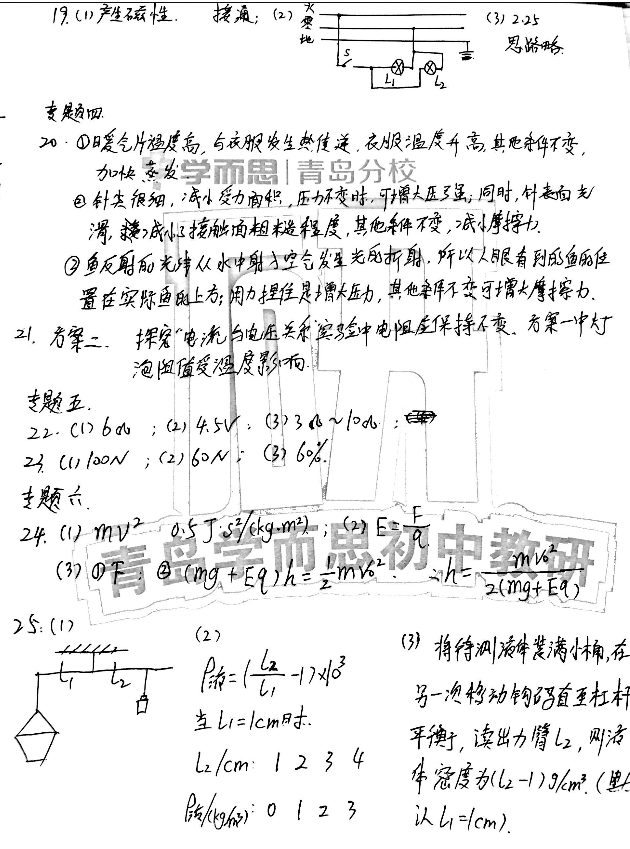 19. (1) 产生磁性. 接通; (2) 火 零 地 S L₁ L₂ (3) 2.25
思路略.
专题四.
20. ①暖气片温度高, 与衣服发生热传递, 衣服温度升高, 其他条件不变,
加快蒸发.
学而思|青岛分校
②针尖很细, 减小受力面积, 压力不变时, 可增大压强; 同时, 针表面光
滑, 减小了接触面粗糙程度, 其他条件不变, 减小摩擦力.
③鱼反射的光线从水中射入空气发生光的折射. 所以人眼看到的鱼的位
置在实际鱼的上方; 用力捏住是增大压力, 其他条件不变可增大摩擦力.
21. 方案二. 探究“电流与电压关系”实验中电阻应保持不变. 方案一中灯
泡阻值受温度影响.
专题五.
22. (1) 6Ω ; (2) 4.5V ; (3) 3Ω～10Ω ;
23. (1) 100N ; (2) 60N ; (3) 60%.
专题六.
24. (1) mv² 0.5 J·s²/(kg·m²) ; (2) E=F/q.
(3) ①下; ②(mg+Eq)h=½mv₀². ∴h=mv₀²/2(mg+Eq)
青岛学而思初中教研
25: (1)
L₁ L₂
(2)
ρ液=(L₂/L₁-1)×10³
当L₁=1cm时.
L₂/cm: 1 2 3 4
ρ液/(kg/m³): 0 1 2 3
(3) 将待测液体装满小桶, 在
另一次移动钩码直至杠杆
平衡, 读出力臂L₂, 则液
体密度为(L₂-1)g/cm³. (默
认L₁=1cm).